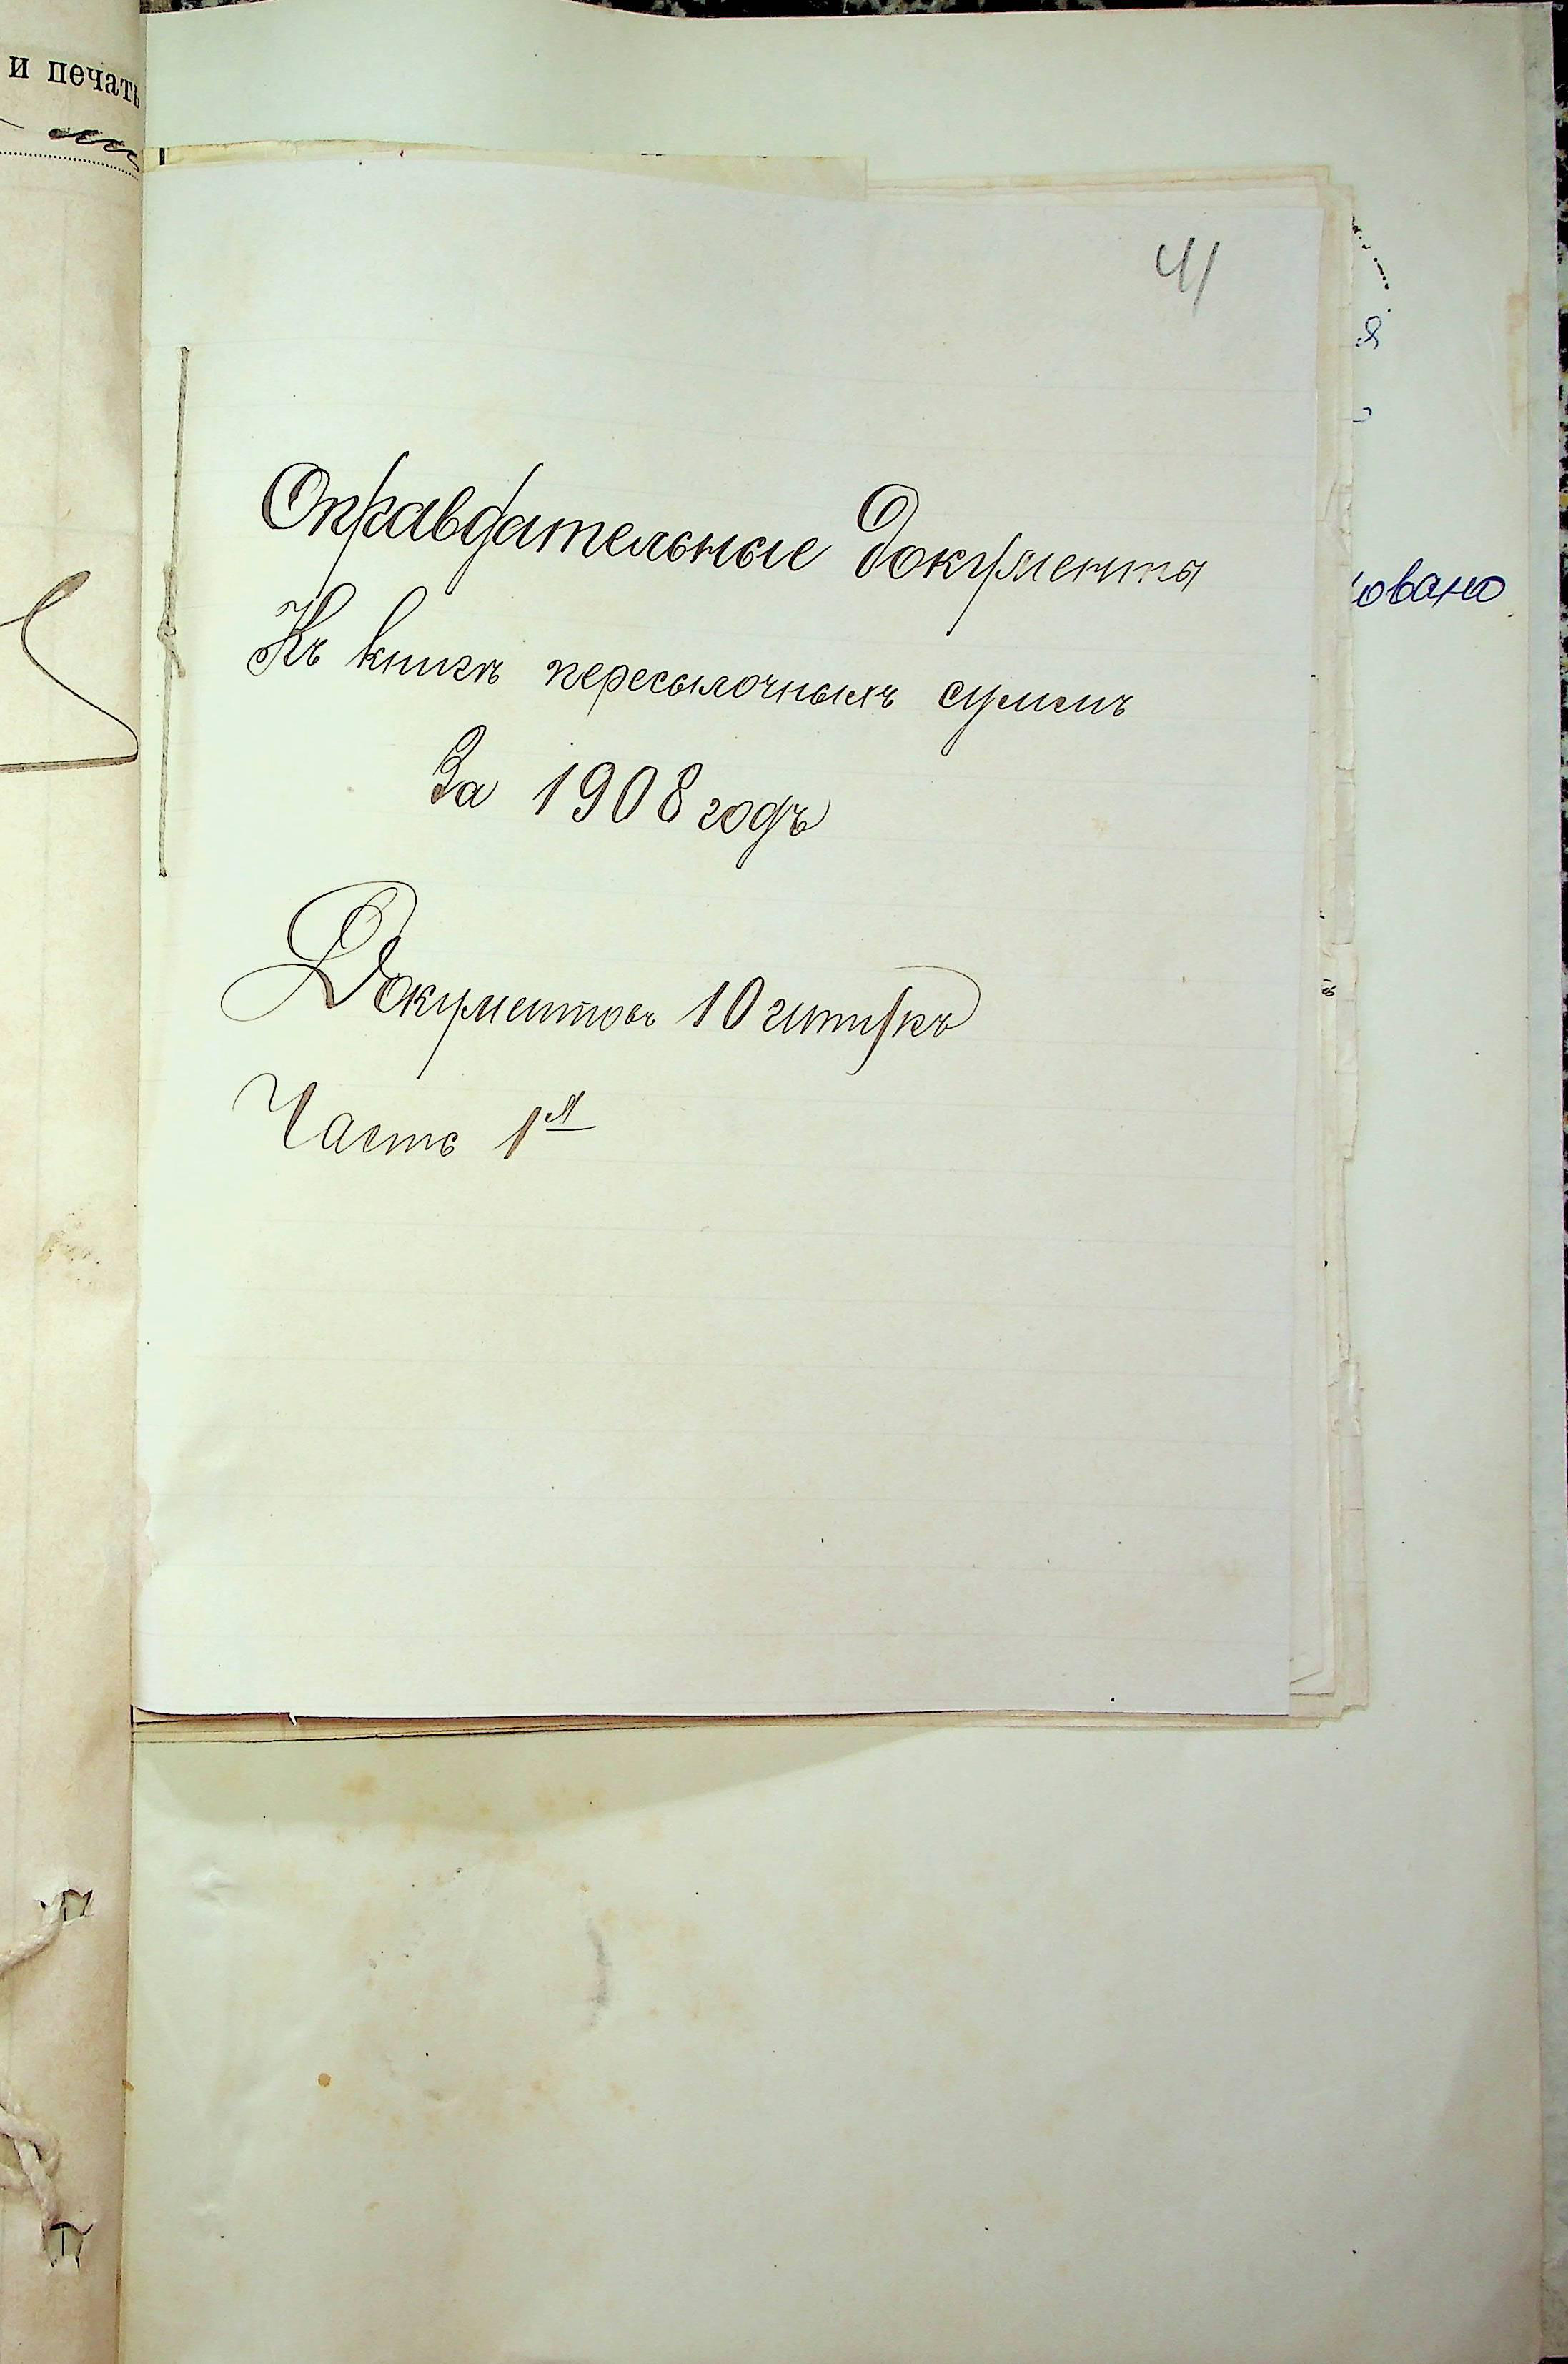 и печать
41
Оправдательные Документы
Къ книгѣ пересылочныхъ суммъ
За 1908 годъ
Документовъ 10 штукъ
Часть 1я
овано